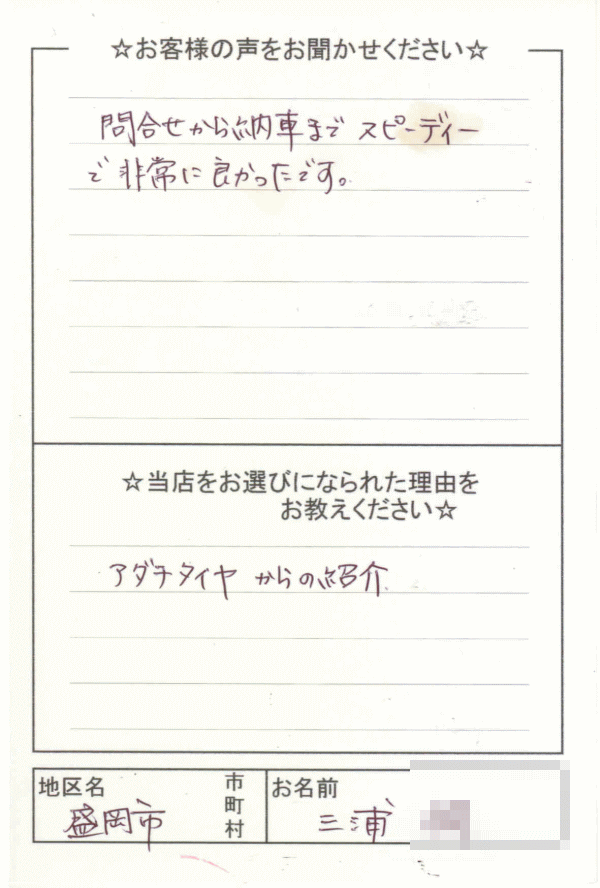 ☆お客様の声をお聞かせください☆
問合せから納車まで スピーディー
で 非常に良かったです。
☆当店をお選びになられた理由を
お教えください☆
アダチタイヤ からの紹介
地区名
盛岡市
市
町
村
お名前
三浦